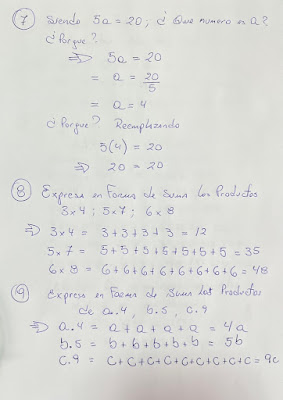 7 Siendo 5a = 20; ¿Que numero es a?
¿Porque?
⇒ 5a = 20
= a = 20/5
= a = 4
¿Porque? Reemplazando
5(4) = 20
⇒ 20 = 20
8 Expresa en Forma de Suma los Productos
3x4 ; 5x7 ; 6x8
⇒ 3x4 = 3+3+3+3 = 12
5x7 = 5+5+5+5+5+5+5 = 35
6x8 = 6+6+6+6+6+6+6+6 = 48
9 Expresa en Forma de Suma los Productos
de a.4, b.5, c.9
⇒ a.4 = a + a + a + a = 4a
b.5 = b + b + b + b + b = 5b
c.9 = c+c+c+c+c+c+c+c+c = 9c